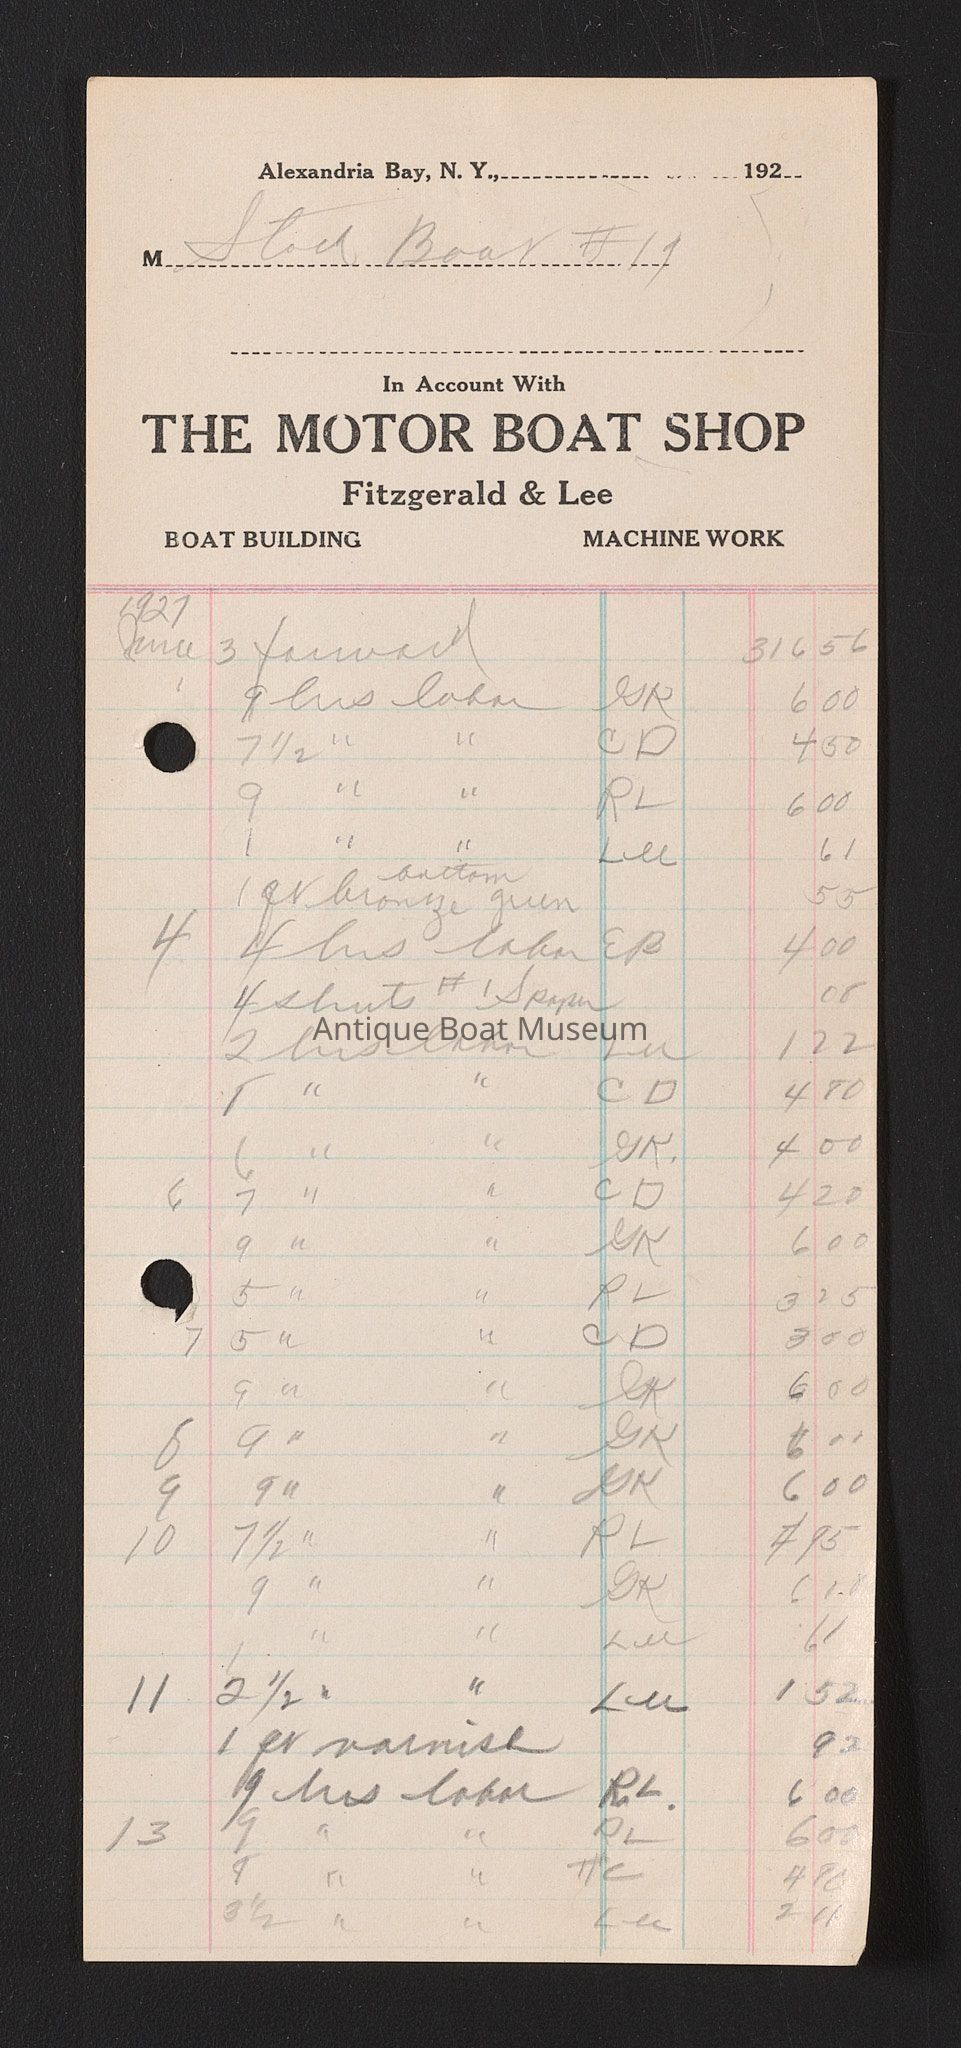 Alexandria Bay, N. Y., 192
M Stock Boat # 19
In Account With
THE MOTOR BOAT SHOP
Fitzgerald & Lee
BOAT BUILDING MACHINE WORK
1927
June 3 forward 316 56
9 hrs labor GK 6 00
7 1/2 " " CD 4 50
9 " " RL 6 00
1 " " Lee 61
bottom
1 qt bronze green 55
4 4 hrs labor EB 4 00
4 shuts # 1 Spaper 08
Antique Boat Museum
2 hrs labor Lee 1 22
8 " " CD 4 80
6 " " GK. 4 00
6 7 " " CD 4 20
9 " " GK 6 00
5 " " RL 3 25
7 5 " " CD 3 00
9 " " GK 6 00
8 9 " " GK 6 00
9 9 " " GK 6 00
10 7 1/2 " " RL 4 95
9 " " GK 6
1 " " Lee 61
11 2 1/2 " " Lee 1 52
1 qt varnish 92
9 hrs labor RL. 6 00
13 9 " " RL 6 00
8 " " HC 4 80
3 1/2 " " Lee 2 11